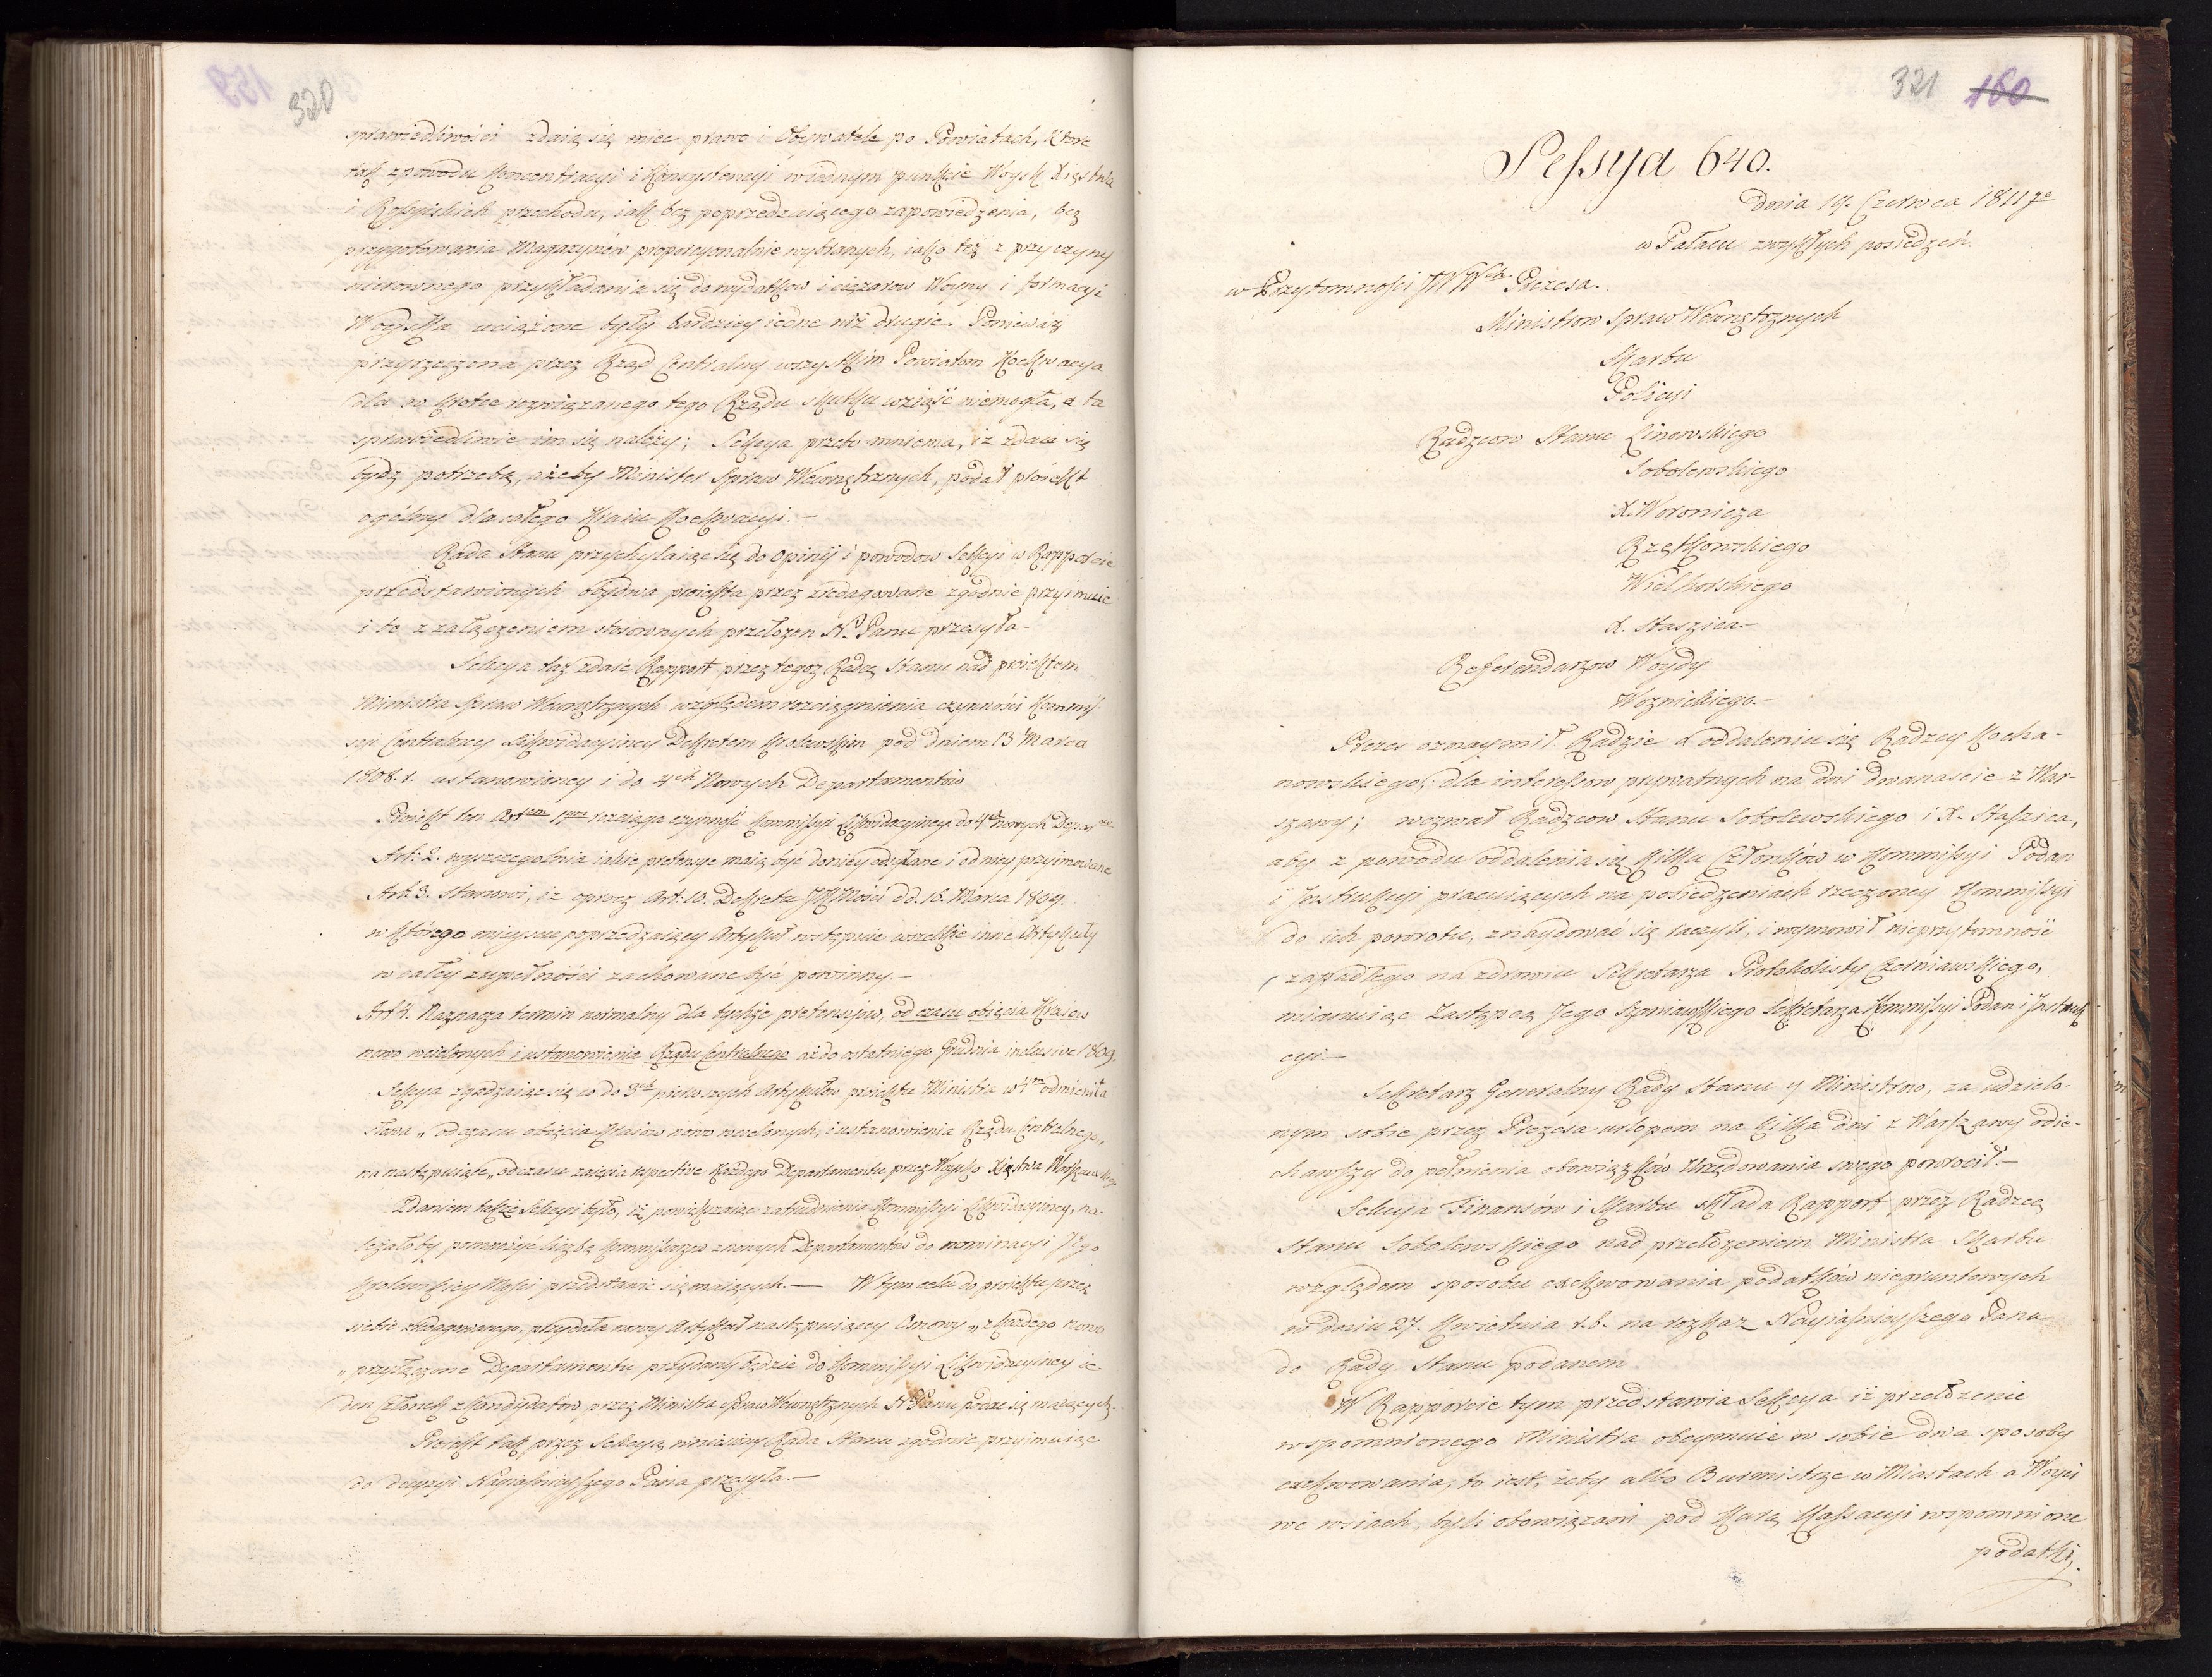 320
sprawiedliwości zdaią się mieć prawo i Obywatele po Powiatach, które
tak z powodu koncentracyi i Konsystencyi w iednym punkcie Woysk Xięstwa
i Rossyiskich przechodu, iak bez poprzedzaiącego zapowiedzenia, bez
przygotowania Magazynów proporcyonalnie wybranych, iako też z przyczyny
nierównego przykładania się do wydatkow i ciężarow Woyny i formacyi
Woyska uciążone były bardziey iedne niż drugie. Ponieważ
przyrzeczona przez Rząd Centralny wszystkim Powiatom Koekwacya
dla w krotce rozwiązanego tego Rządu skutku wziąść niemogła, a ta
sprawiedliwie im się należy; Sekcya przeto mniema, iż zdaie się
bydź potrzebą, ażeby Minister Spraw Wewnętrznych, podał proiekt
ogólny dla całego Kraiu Koekwacyi.—
Rada Stanu przychylaiąc się do Opinij i powodow Sekcyi w Rapporcie
przedstawionych obydwa proiekta przez zredagowane zgodnie przyimuie
i te z załączeniem stosownych przełożen N. Panu przesyła—
Sekcya taż zdaie Rapport przez tegoż Radcę Stanu nad proiektem
Ministra Spraw Wewnętrznych względem rozciągnienia czynności Kommis-
syi Centralney Likwidacyiney Dekretem Krolewskim pod dniem 13 Marca
1808. r. ustanowioney i do 4ch Nowych Departamentów
Proiekt ten Artem 1wm rozciąga czynność Kommissyi Likwidacyiney do 4ch nowych Depar
Art: 2. wyszczegolnia iakie pretensye maią być do niey odsyłane i od niey przyimowane
Art. 3. stanowi, iż oprocz Art. 10. Dekretu JKMości dd. 18. Marca 1809.
w którego mieysce poprzedzaiący Artykuł wstępuie wszelkie inne Artykuły
w całey zupełności zachowane być powinny.—
Art 4. Naznacza termin normalny dla tychże pretensyow, od czasu obięcia Kraiow
nowo wcielonych i ustanowienia Rządu Centralnego aż do ostatniego Grudnia inclusive 1809.
Sekcya zgadzaiąc się co do 3ch pierwszych Artykułow proiektu Ministra w 4m odmieniła
słowa „ od czasu obięcia Kraiow nowo wcielonych, i ustanowienia Rządu Centralnego,
na następuiące „ od czasu zaięcia respective każdego Departamentu przez Woysko Xięstwa Warszawskiego
Zdaniem także Sekcyi było, iż powiększaiąc zatrudnienia Kommissyi Likwidacyiney, na-
leżałoby pomnożyć liczbę Kommissarzow z nowych Departamentów do nominacyi Jego
Krolewskiey Mości przedstawić się maiących.— W tym celu do proiektu przez
siebie zredagowanego, przydała nowy Artykuł następuiącey Osnowy „ z każdego nowo
„ przyłączone Departamentu przydany będzie do Kommissyi Likwidacyiney ie-
den Członek z Kandydatow przez Ministra Spraw Wewnętrznych N Panu podać się maiących.
Proiekt tak przez Sekcyą wniesiony Rada Stanu zgodnie przyimuiąc
do decyzyi Nayiaśnieyszego Pana przesyła.—
321 160
Sessya 640.
Dnia 19. Czerwca 1811 go
w Pałacu zwykłych posiedzeń.
w Przytomności JWWch Prezesa.
Ministrow Spraw Wewnętrznych
Skarbu
Policyi
Radzcow Stanu Linowskiego
Sobolewskiego
X. Woronicza
Rzętkowskiego
Wielhorskiego
X. Staszica.—
Referendarzow Woydy
Woznickiego.—
Prezes oznaymił Radzie o oddaleniu się Radzcy Kocha-
nowskiego, dla interessow prywatnych na dni dwanaście z War-
szawy; wezwał Radzcow Stanu Sobolewskiego i X. Staszica,
aby z powodu oddalenia się kilku Członków w Kommissyi Podan
i Instrukcyi pracuiących na posiedzeniach rzeczoney Kommissyi
do ich powrotu, znaydować się raczyli, i wymowił nieprzytomność
zapadłego na zdrowiu Sekretarza Protokolisty Czerniawskiego,
mianuiąc Zastępcą Jego Szaniawskiego Sekretarza Kommissyi Podan i Instruk-
cyi.—
Sekretarz Generalny Rady Stanu y Ministrow, za udzielo-
nym sobie przez Prezesa urlopem na kilka dni z Warszawy odie-
chawszy do pełnienia obowiązków Urzędowania swego powrocił.—
Sekcya Finansów i Skarbu składa Rapport przez Radzcę
Stanu Sobolewskiego nad przełożeniem Ministra Skarbu
względem sposobu exekwowania podatków niegruntowych
w dniu 27. Kwietnia r. b. na rozkaz Nayiaśnieyszego Pana
do Rady Stanu podanem.
W Rapporcie tym przedstawia Sekcya iż przełożenie
wspomnionego Ministra obeymuie w sobie dwa sposoby
exekwowania; to iest, żeby albo Burmistrze w Miastach a Woyci
we wsiach, byli obowiązani pod karą Kassacyi wspomnione
podatki,